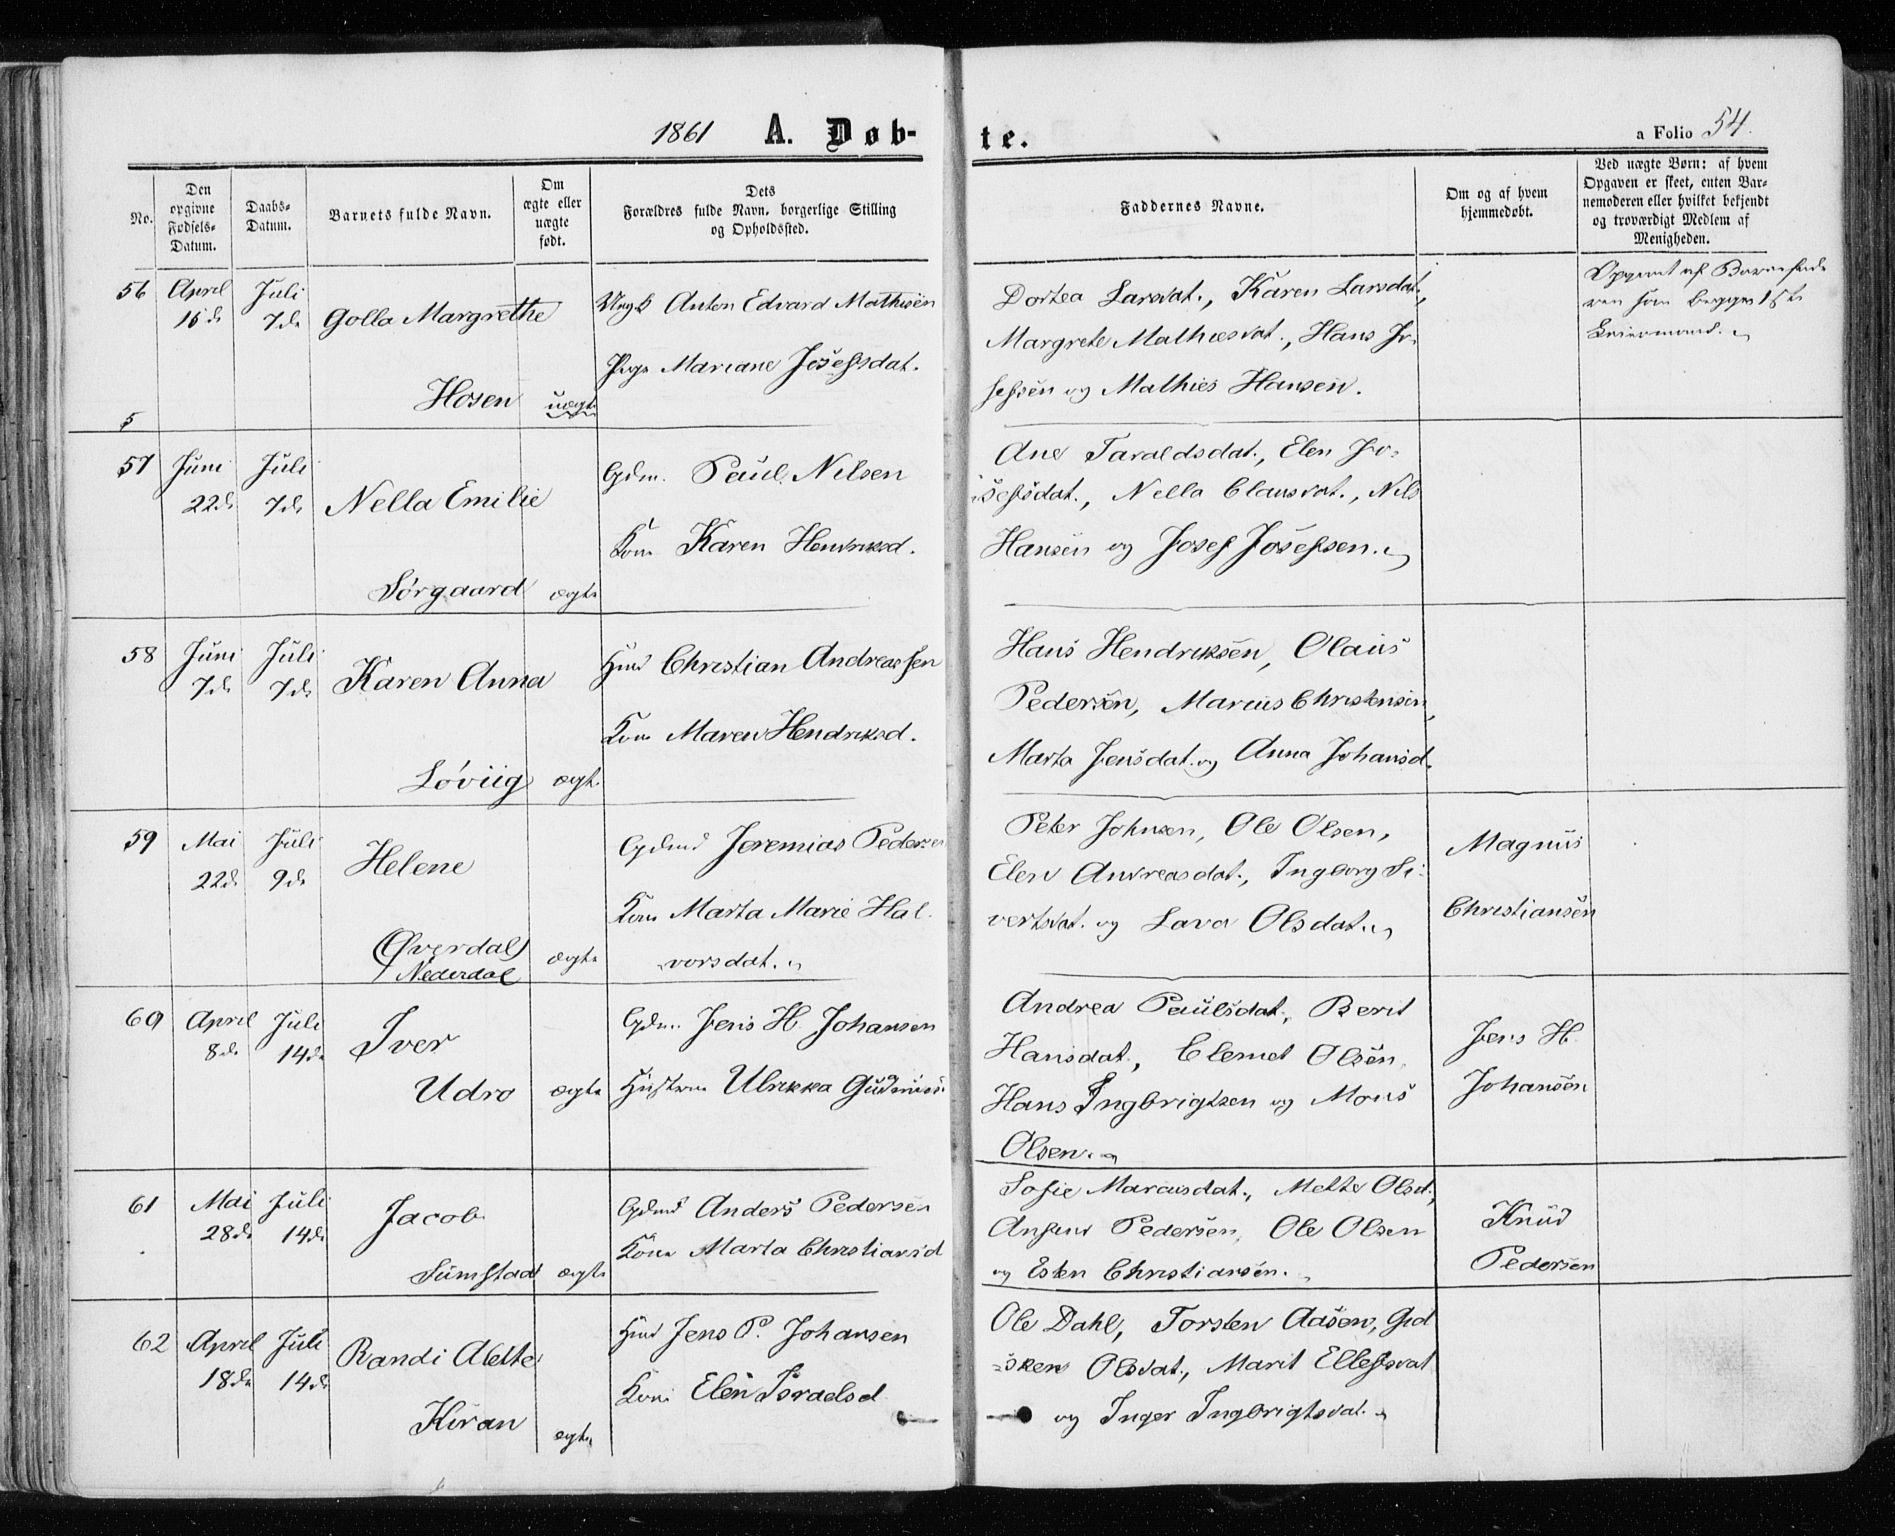 1861 A. Døb-
te.
a Folio 54.
No.
Den
opgivne
Fødsels-
Datum.
Daabs-
Datum.
Barnets fulde Navn.
Om
ægte eller
uægte
født.
Dets
Forældres fulde Navn, borgerlige Stilling
og Opholdssted.
Faddernes Navne.
Om og af hvem
hjemmedøbt.
Ved uægte Børn: af hvem
Opgaven er skeet, enten Bar-
nemoderen eller hvilket bekjendt
og troværdigt Medlem af
Menigheden.
56 April Juli
7de
Golla Margrethe
Hosen uægte
5
Ungk Anton Edvard Mathisen
Pige Mariane Josefsdat.
Dortea Larsdat., Karen Larsdat.,
Margrete Mathiesdat., Hans Jo-
sefsen og Mathies Hansen.
Opgivet af Barnefade
ren som begges 1ste
Leiermaal.
57 Juni Juli
22de 7de Nella Emilie
Sørgaard ægte
Gdm. Paul Nilsen
Kone Karen Hendriksd.
Ane Taraldsdat., Elen Jo-
sefsdat., Nella Clausdat., Nils
Hansen og Josef Josefsen.
58 Juni Juli
7de 7de Karen Anna
Løviig ægte
Huusm Christian Andreassen
Kone Maren Hendriksd.
Hans Hendriksen, Olaus
Pedersen, Marius Christensen,
Marta Jensdat. og Anna Johansd.
59 Mai Juli
22de 9de Helene
Øverdal
Nederdal ægte
Gdmd Jeremias Pedersen
Kone Marta Marie Hal-
vorsdat.
Peter Johnsen, Ole Olsen,
Elen Andreasdat., Ingborg Si-
vertsdat. og Lava Olsdat.
Magnus
Christiansen
60 April Juli
8de 14de Iver
Udro ægte
Gdm. Jens H. Johansen
Hustru Ulrikka
Andrea Paulsdat., Berit
Hansdat., Clemet Olsen,
Hans Ingbrigtsen og Mons
Olsen.
Jens H.
Johansen
61 Mai Juli
28de 14de Jacob
Sumstad ægte
Gdmd Anders Pedersen
Kone Marta Christiansd
Sofie Marcusdat., Mette Olsd.,
Pedersen, Ole Olsen
og Esten Christiansen.
Knud
Pedersen
62 April Juli
18de 14de Randi Alette
Kiran ægte
Huusm Jens P. Johansen
Kone Elen Israelsd
Ole Dahl, Torsten Aasen, Gid
sken Olsdat., Marit Ellefsdat
og Inger Ingbrigtsdat.